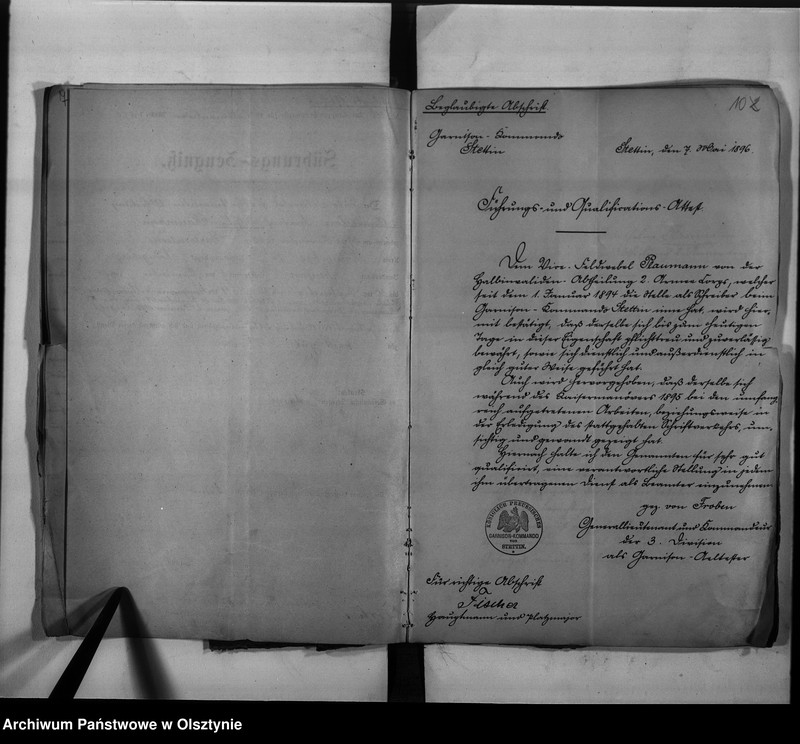 Beglaubigte Abschrift
102
Garnison-Kommando
Stettin
Stettin, den 7. Mai 1896.
Führungs- und Qualifications-Attest.
Dem Vice-Feldwebel Naumann von der
Halbinvaliden-Abtheilung 2. Armee Corps, welcher
seit dem 1. Januar 1894 die Stelle als Schreiber beim
Garnison-Kommando Stettin inne hat, wird hier-
mit bestätigt, daß derselbe sich bis zum heutigen
Tage in dieser Eigenschaft pflichttreu und zuverlässig
bewährt, sowie sich dienstlich und außerdienstlich in
gleich guter Weise geführt hat.
Auch wird hervorgehoben, daß derselbe sich
während des Kaisermanövers 1895 bei den umfang-
reich aufgetretenen Arbeiten, beziehungsweise in
der Erledigung des stattgehabten Schriftverkehrs, um-
sichtig und gewandt gezeigt hat.
Hiernach halte ich den Genannten für sehr gut
qualificirt, eine verantwortliche Stellung in jedem
ihm übertragenen Dienst als Beamter einzunehmen.
gez. von Froben
Generallieutenant und Kommandeur
der 3. Division
als Garnison-Aeltester
KÖNIGLICH PREUSSISCHES
GARNISON-KOMMANDO
STETTIN
Für richtige Abschrift
Fischer
Hauptmann und Platzmajor
Führungs-Zeugniß.
Archiwum Państwowe w Olsztynie